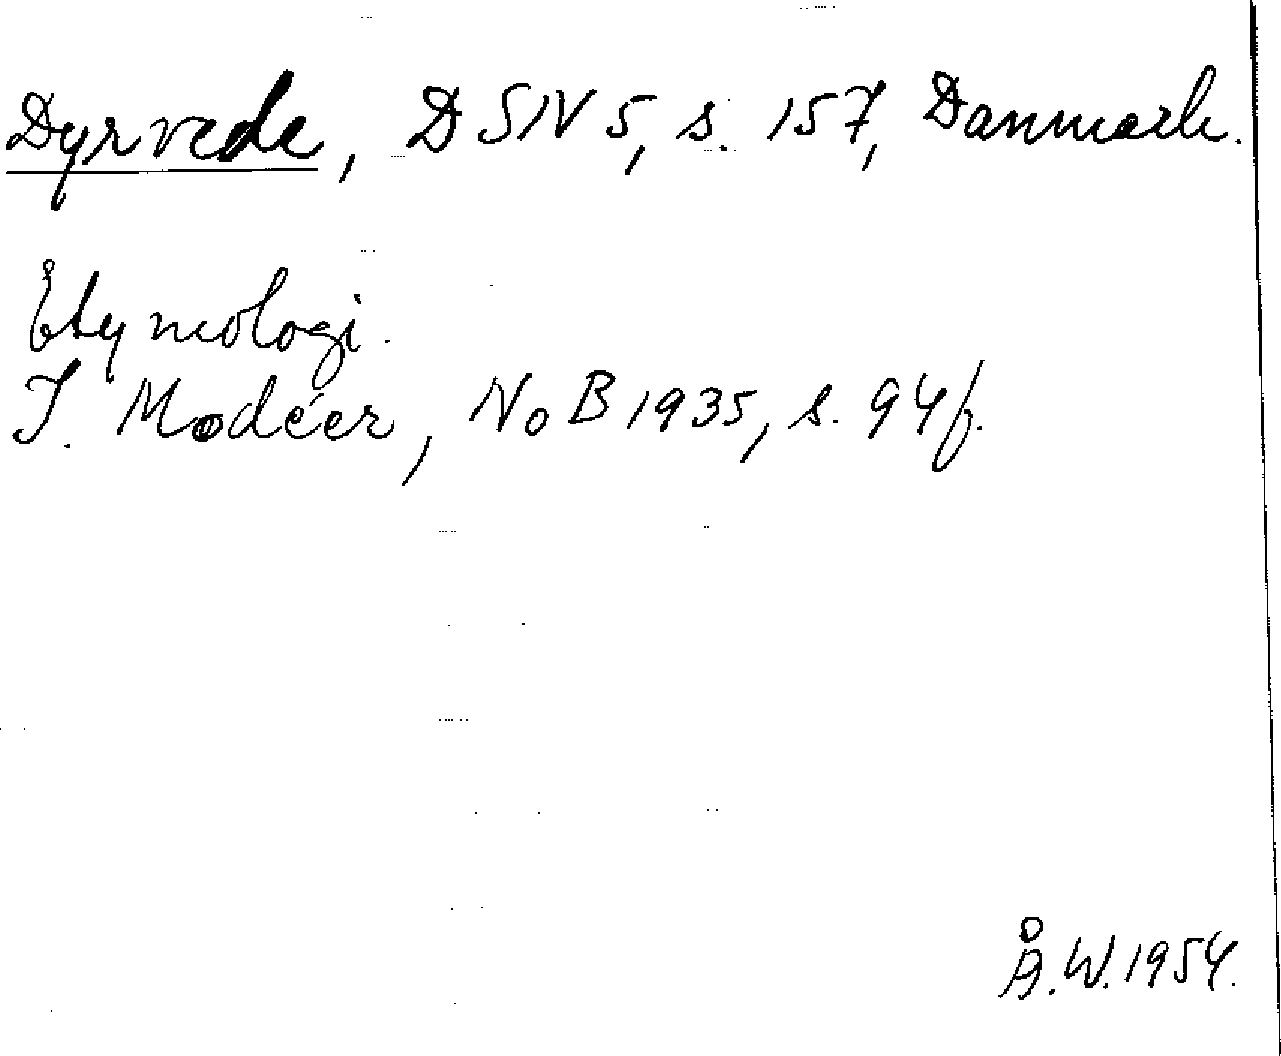 Dyrvede, DSIV5, s. 157, Danmark.
Etymologi.
I. Modéer, NoB 1935, s. 94f.
Å.W. 1954.